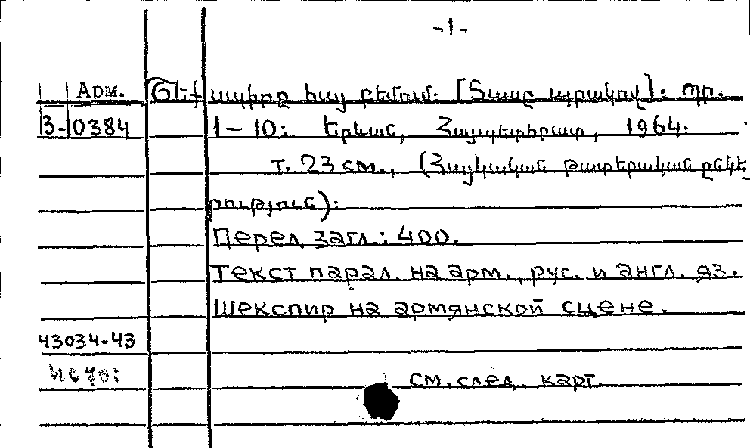 -1-
Арм. Շեքսպիրը հայ բեմում. [Տասը պրակով]: Պր.
3-10384 1-10: Երևան, Հայպետհրատ, 1964.
т. 23 см., (Հայկական թատերական ընկե-
րություն):
Перед загл.: 400.
Текст парал. на арм., рус. и англ. яз.
Шекспир на армянской сцене.
43034-43
см. след. карт.